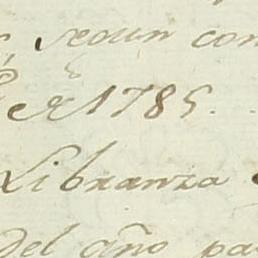 segun con
1785.
Libranza
del año pa